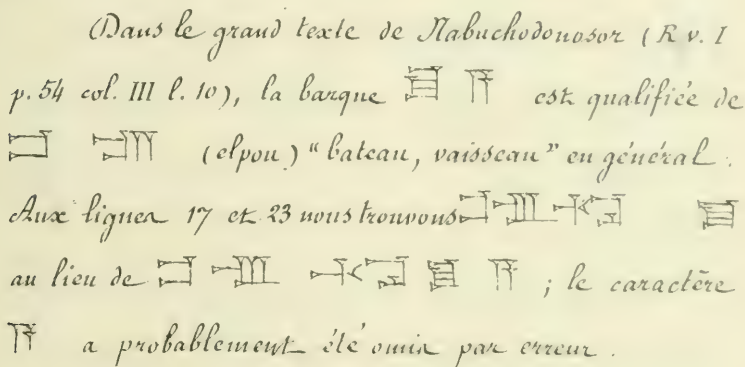 Dans le grand texte de Nabuchodonosor (R v. I
p. 54 col. III l. 10), la barque est qualifiée de
(elpou) "bateau, vaisseau" en général.
Aux lignes 17 et 23 nous trouvons
au lieu de ; le caractère
a probablement été omis par erreur.